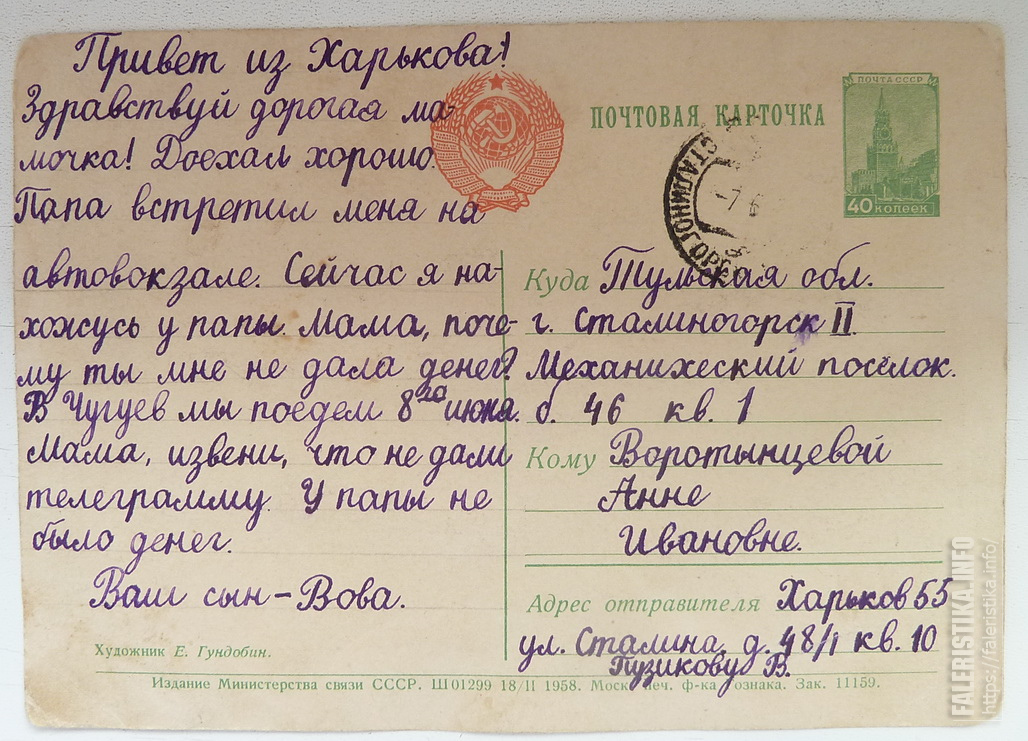 Привет из Харькова!
Здравствуй дорогая ма-
мочка! Доехал хорошо.
Папа встретил меня на
автовокзале. Сейчас я на-
хожусь у папы. Мама, поче-
му ты мне не дала денег?
В Чугуев мы поедем 8го июня.
Мама, извени, что не дали
телеграмму. У папы не
было денег.
Ваш сын – Вова.
Художник Е. Гундобин.
ПОЧТОВАЯ КАРТОЧКА
ПОЧТА СССР
40 КОПЕЕК
СТАЛИНОГОРСК
-7 6
Куда Тульская обл.
г. Сталиногорск II.
Механический посёлок.
д. 46 кв. 1
Кому Воротынцевой
Анне
Ивановне.
Адрес отправителя Харьков 55
ул. Сталина д. 48/1 кв. 10
Пузикову В.
Издание Министерства связи СССР. Ш01299 18/II 1958. Моск. печ. ф-ка Гознака. Зак. 11159.
FALERISTIKA.INFO
https://faleristika.info/